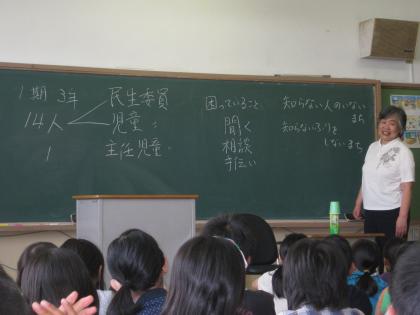 1期 3年
14人
1
民生委員
児童 〃
主任児童 〃
困っていること
聞く
相談
手伝い
知らない人のいない
まち
知らないふりを
しないまち